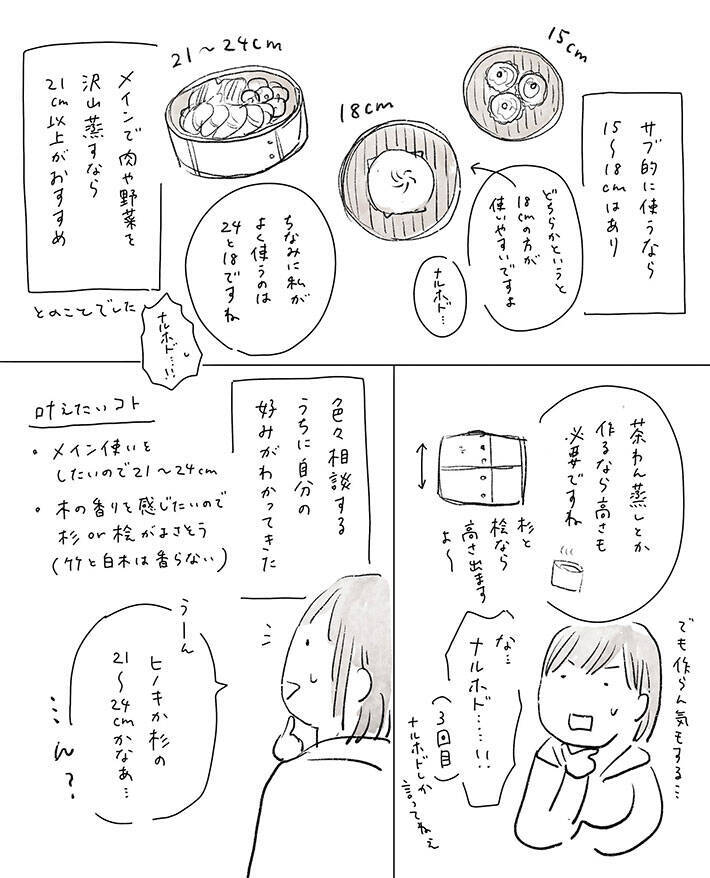 サブ的に使うなら
15〜18cmはあり
15cm
どちらかというと
18cmの方が
使いやすいですよ
18cm
ナルホド…
21〜24cm
ちなみに私が
よく使うのは
24と18ですね
メインで肉や野菜を
沢山蒸すなら
21cm以上がおすすめ
とのことでした
ナルホド…!!
茶わん蒸しとか
作るなら高さも
必要ですね
杉と
桧なら
高さ出ます
よ〜
でも作らん気もする…
な…
ナルホド……!!
(3回目)
ナルホドしか
言ってねぇ
色々相談する
うちに自分の
好みがわかってきた
叶えたいコト
• メイン使いを
したいので21〜24cm
• 木の香りを感じたいので
杉or桧がよさそう
(竹と白木は香らない)
うーん
ヒノキか杉の
21〜
24cmかなぁ…
…ん?